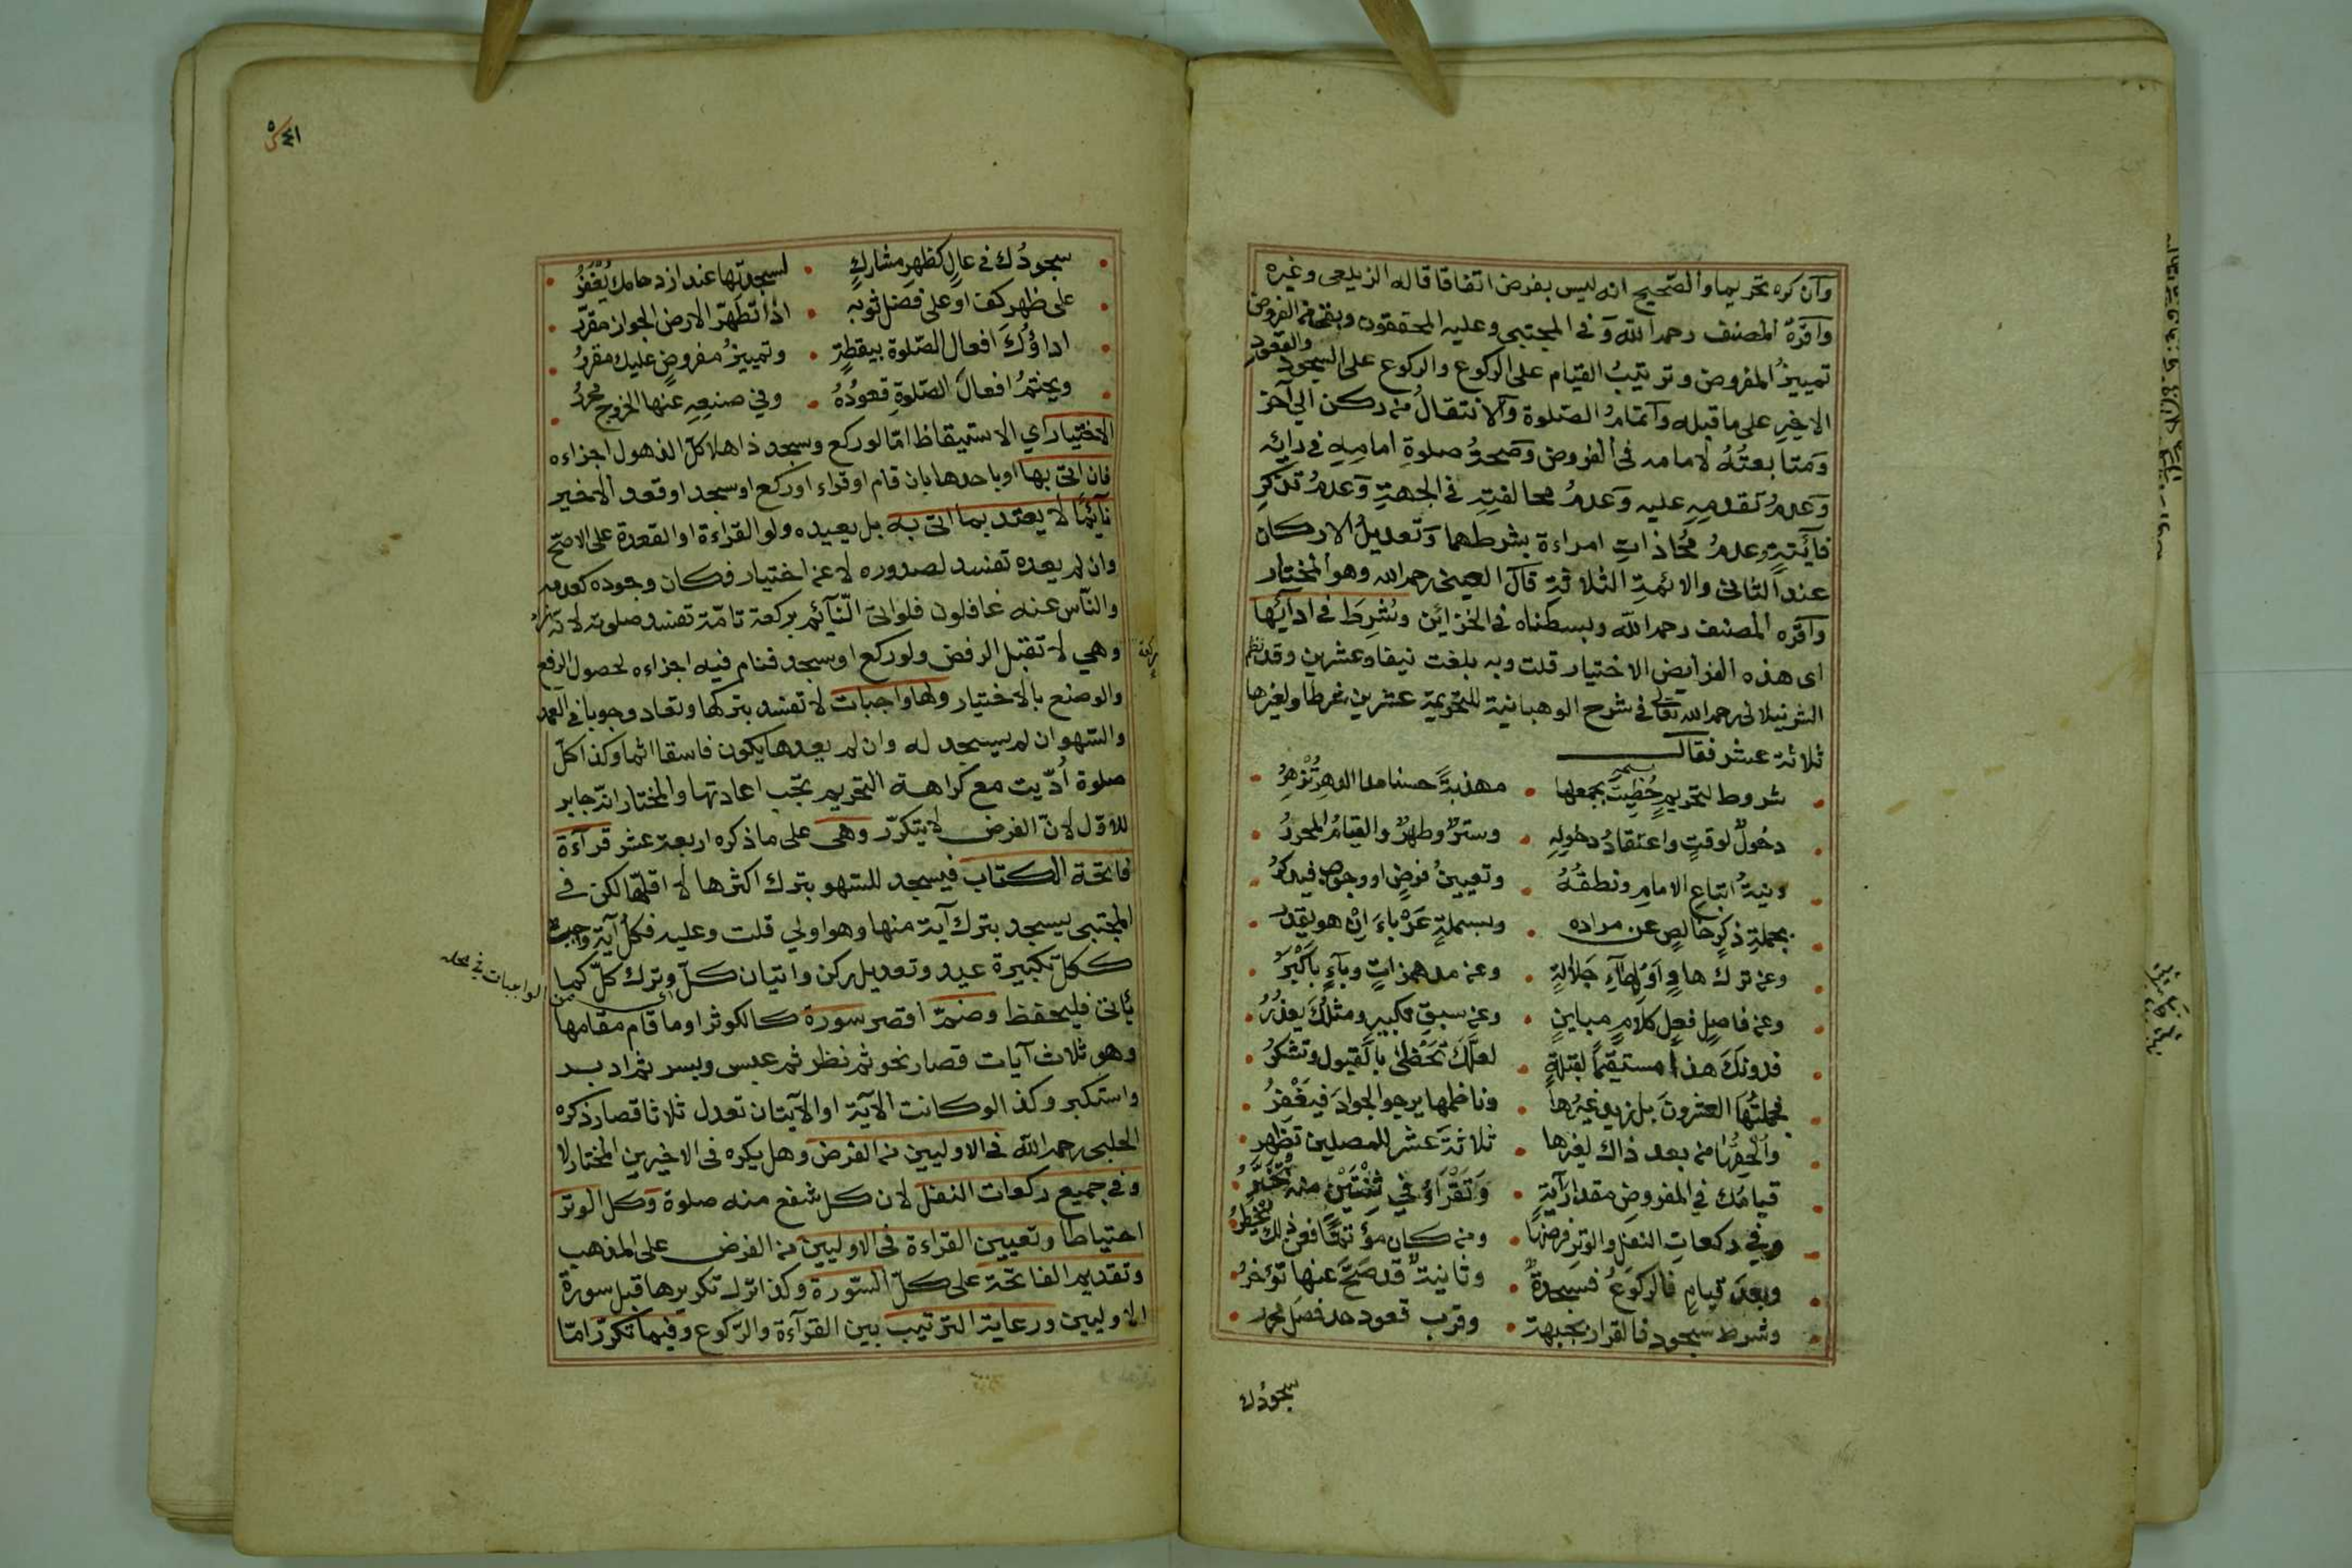 وان كره تحريما والصحيح انه ليس بفرض اتفاقا قاله الزيلعي وغيره
واقره المصنف رحمه الله وفي المجتبى وعليه المحققون وبقى من الفروض
تمييزُ المفروض وترتيبُ القيام على الركوع والركوع على السجود والقعود
الاخيرِ على ما قبله واتمامُ الصلوة والانتقالُ من ركن الى آخر
ومتابعتُهُ لامامه في الفروض وصحةُ صلوةِ امامِهِ في رائه
وعدمُ تقدمِهِ عليه وعدمُ مخالفتِهِ في الجهةِ وعدمُ تذكرِ
فائتةٍ وعدمُ مُحاذاتِ امراءة بشرطهما وتعديلُ الاركان
عند الثاني والائمةِ الثلاثةِ قال العيني رحمه الله وهو المختار
واقره المصنف رحمه الله وبسطناه في الخزائن وشُرِطَ في ادآئها
اى هذه الفرايض الاختيار قلت وبه بلغت نيفا وعشرين وقد نظم
الشرنبلالي رحمه الله تعالى في شرح الوهبانية للتحريمة عشرين شرطا ولغيرها
ثلاثة عشر فقال
شروط لتحريمٍ حُظِيتَ بجمعها • مهذبةً حسنا مدا الدهرِ تُزْهِرُ
دخولٌ لوقتٍ واعتقادُ دخولِهِ • وسترٌ وطهرٌ والقيامُ المحررُ
ونيةُ اتباعِ الامامِ ونطقُهُ • وتعيينُ فرضٍ او وجوبٍ فيذكرُ
بجملةِ ذكرٍ خالصٍ عن مراده • وبسملةٍ عَرْباءَ اِنْ هو يقدرُ
وعن تركِ هاوٍ اَوْ لهآءِ جَلالةٍ • وعن مد همزاتٍ وبآءٍ بأكبرُ
وعن فاصلٍ فعلٍ كلامٍ مباينٍ • وعن سبقِ تكبيرٍ ومثلُكَ يعذرُ
فدونكَ هذا مستقيمًا لقبلةٍ • لعلّكَ تَحْظىٰ بالقبول وتشكرُ
فجملتُها العشرونَ بل زيد غيرُها • وناظمها يرجو الجوادَ فيَغْفِرُ
واُلحِقُها من بعد ذاك لغيرها • ثلاثةَ عشر للمصلين تظهر
قيامُك في المفروضِ مقدارَ آيةٍ • وَتَقْرَاءُ في ثِنْتَيْنِ منه تُخَيَّرُ
وفي ركعاتِ النفل والوتر فرضها • ومن كان مؤتمًا فعن ذلك يُحظرُ
وبعدَ قيامٍ فالركوعُ فسجدةٌ • وثانيةٌ قد صَحَّ عنها تؤخرُ
وشرط سجود فالقرار بجبهة • وقرب قعود حد فصل محرر
سجودُك
٤١
سجودُك في عالٍ كظهرِ مشاركٍ • لسجدتها عند ازدحامك يُغْفَرُ
على ظهر كف او على فضل ثوبه • اذا تطهّر الارض الجواز مقرّر
اداؤك افعال الصّلوة بيقظةٍ • وتمييزُ مفروضٍ عليك مقررُ
ويختمُ افعالَ الصّلوةِ قعودُهُ • وفي صنعِهِ عنها الخروج محررُ
الاختيار اي الاستيقاظ امّا لو ركع وسجد ذاهلا كلّ الذهول اجزاءه
فان اتى بها او باحدها بان قام او قراء او ركع او سجد او قعد الاخير
نآئمًا لا يعتد بما اتى به بل يعيده ولو القراءة او القعدة على الاصحّ
وان لم يعده تفسد لصدوره لا عن اختيار فكان وجوده كعدمه
والنّاس عنه غافلون فلو اتى النّآئم بركعة تامّة تفسد صلوته لانّه زاد
ركعة
وهي لا تقبل الرفض ولو ركع او سجد فنام فيه اجزاءه لحصول الرفع
والوضع بالاختيار ولها واجبات لا تفسد بتركها وتعاد وجوبا في العمد
والسّهو ان لم يسجد له وان لم يعدها يكون فاسقا اثما وكذا كلّ
صلوة اُدّيت مع كراهة التحريم تجب اعادتها والمختار انّه جابر
للاوّل لانّ الفرض لا يتكرّر وهى على ما ذكره اربعة عشر قرآءة
فاتحة الكتاب فيسجد للسّهو بترك اكثرها لا اقلّها لكن في
المجتبى يسجد بترك آية منها وهو اولى قلت وعليه فكلّ آية واجبة
ككلّ تكبيرة عيد وتعديل ركن واتيان كلّ وترك كلّ كما
من الواجبات في محله
يأتى فليحفظ وضمّ اقصر سورة كالكوثر او ما قام مقامها
وهو ثلاث آيات قصار نحو ثم نظر ثم عبس وبسر ثم ادبر
واستكبر وكذا لو كانت الآية او الآيتان تعدل ثلاثا قصار ذكره
الحلبى رحمه الله في الاوليين من الفرض وهل يكره فى الاخيرين المختار لا
وفي جميع ركعات النفل لان كل شفع منه صلوة وكل الوتر
احتياطا وتعيين القراءة في الاوليين من الفرض على المذهب
وتقديم الفاتحة على كلّ السّورة وكذا ترك تكريرها قبل سورة
الاوليين ورعاية الترتيب بين القرآءة والرّكوع وفيما تكرّر امّا